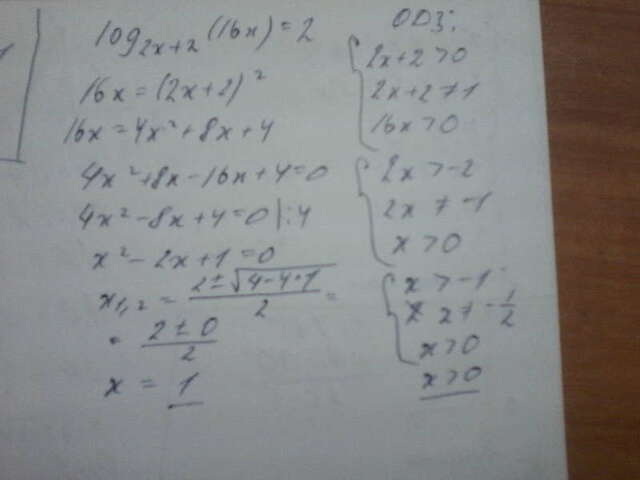 log₂ₓ₊₂(16x) = 2
16x = (2x+2)²
16x = 4x² + 8x + 4
4x² + 8x - 16x + 4 = 0
4x² - 8x + 4 = 0 |:4
x² - 2x + 1 = 0
x₁,₂ = (2 ± √(4-4·1))/2 =
= (2 ± 0)/2
x = 1
ОДЗ:
2x+2 > 0
2x+2 ≠ 1
16x > 0
2x > -2
2x ≠ -1
x > 0
x > -1
x ≠ -1/2
x > 0
x > 0